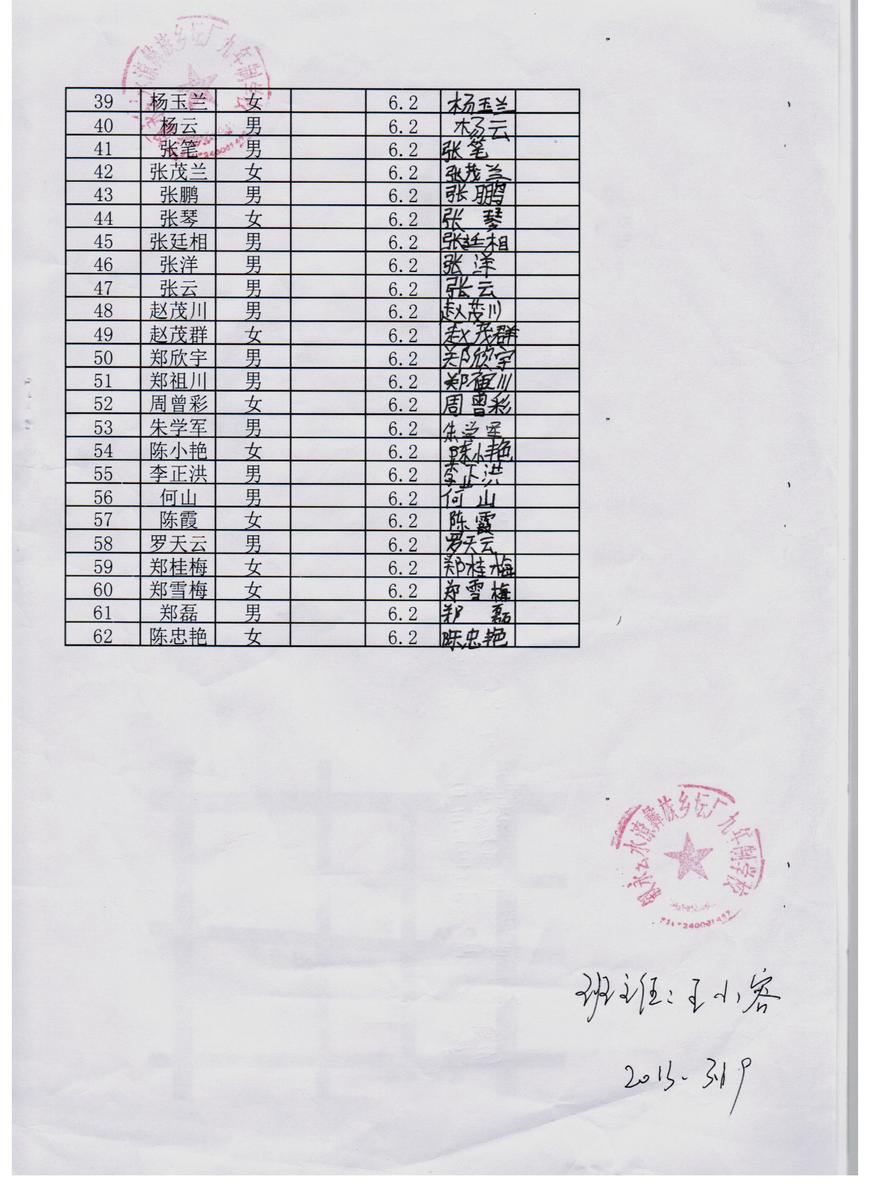 39 杨玉兰 女 6.2 杨玉兰
40 杨云 男 6.2 杨云
41 张笔 男 6.2 张笔
42 张茂兰 女 6.2 张茂兰
43 张鹏 男 6.2 张鹏
44 张琴 女 6.2 张琴
45 张廷相 男 6.2 张廷相
46 张洋 男 6.2 张洋
47 张云 男 6.2 张云
48 赵茂川 男 6.2 赵茂川
49 赵茂群 女 6.2 赵茂群
50 郑欣宇 男 6.2 郑欣宇
51 郑祖川 男 6.2 郑祖川
52 周曾彩 女 6.2 周曾彩
53 朱学军 男 6.2 朱学军
54 陈小艳 女 6.2 陈小艳
55 李正洪 男 6.2 李正洪
56 何山 男 6.2 何山
57 陈霞 女 6.2 陈霞
58 罗天云 男 6.2 罗天云
59 郑桂梅 女 6.2 郑桂梅
60 郑雪梅 女 6.2 郑雪梅
61 郑磊 男 6.2 郑磊
62 陈忠艳 女 6.2 陈忠艳
永云水潦彝族乡坛厂九年制学校
班主任：王小容
2013.3.19